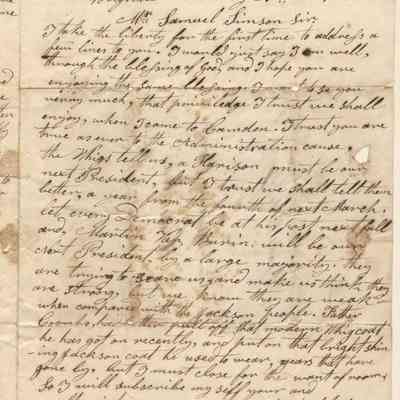 Mr. Samuel Simson Sir,
I take the liberty for the first time to address a
few lines to you. I would just say I am well,
through the blessing of God, and I hope you are
enjoying the same blessing. I want to se you
very much, that priviledge I trust we shall
enjoy, when I come to Camden. I trust you are
true as ever to the Administration cause.
the Whigs tell us, a Harison must be our
next President, but I trust we shall tell them
better, a year from the fourth of next March.
let every Democrat be at his post next fall
and, Martin Van Burin will be our
next President by a large majority. they
are trying to scare us and make us think they
are strong, but we know they are weak
when compared with the Jackson People. Father
has put off that modern Whig coat
he has got on recently, and put on that bright shin
-ing Jackson coat he used to wear, years that have
gone by. but I must close for the want of room,
So I will subscribe my self your and